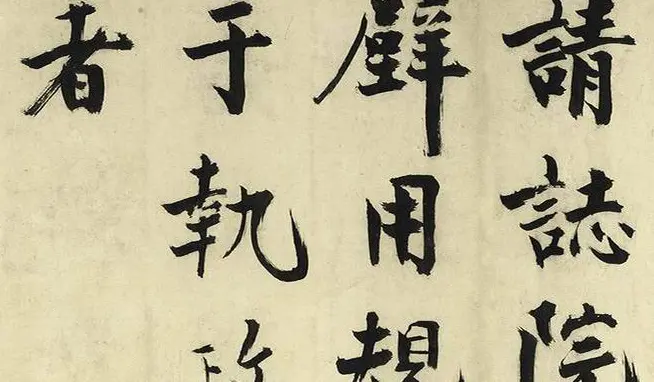 請誌院
壁用規
于執政
者